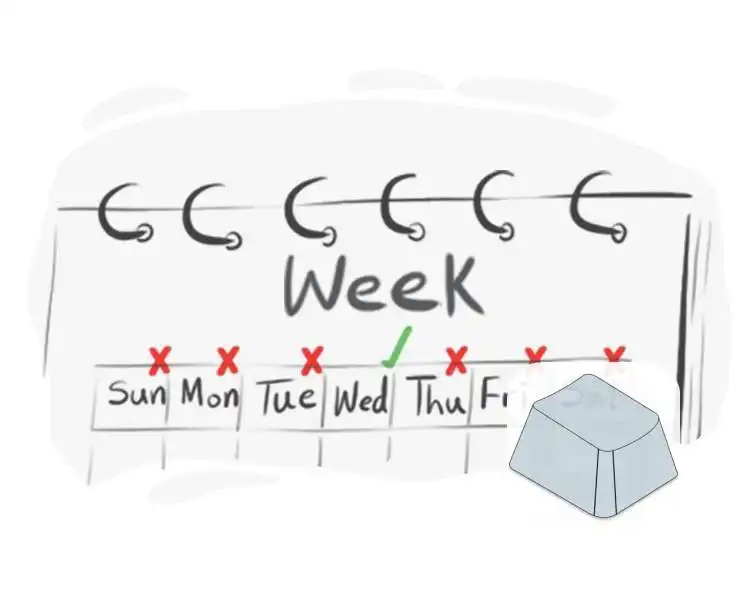 Week
Sun Mon Tue Wed Thu Fri Sat